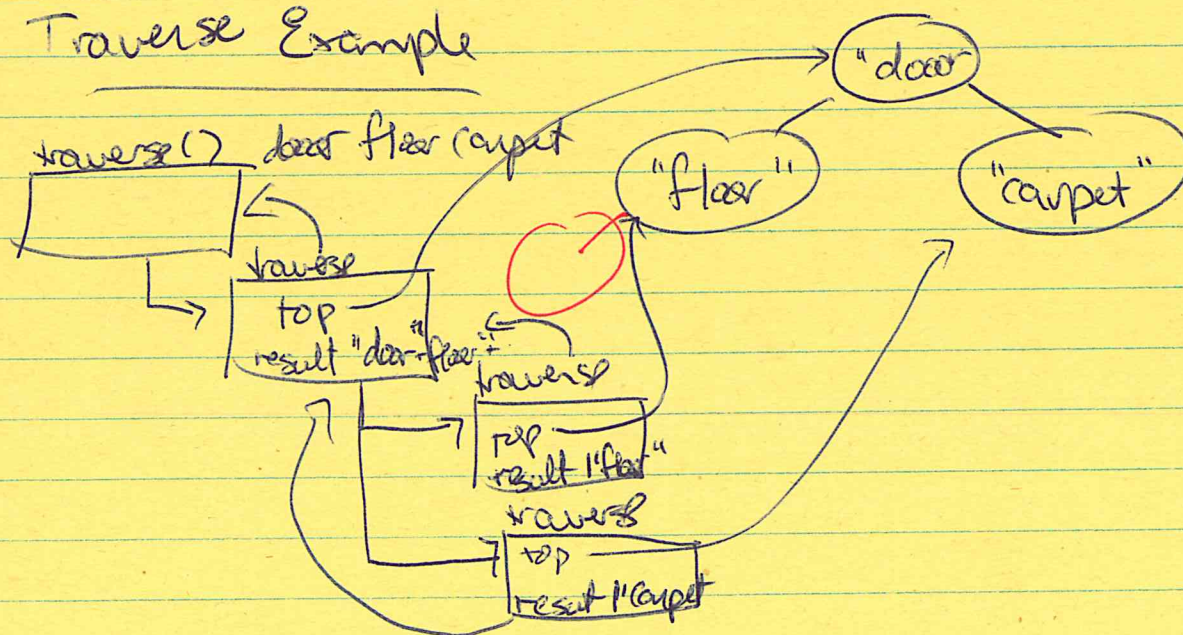 Traverse Example
"door
traverse() door floor carpet
"floor"
"carpet"
traverse
top
result "door"+"floor"+
traverse
top
result "floor"
traverse
top
result "Carpet